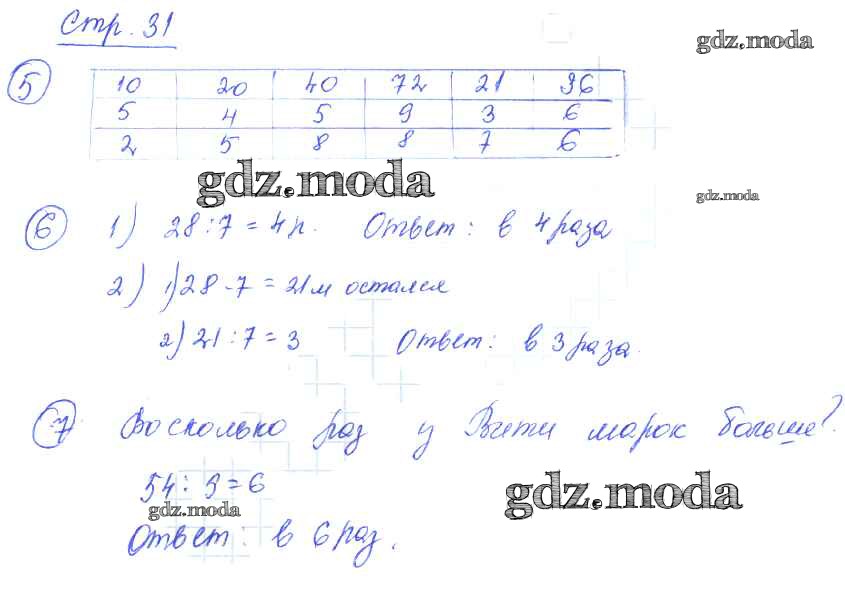 Стр. 31
gdz.moda
5
10 20 40 72 21 36
5 4 5 9 3 6
2 5 8 8 7 6
gdz.moda
gdz.moda
6 1) 28:7=4р. Ответ: в 4 раза
2) 1) 28-7=21м остался
2) 21:7=3 Ответ: в 3 раза.
7 Восколько раз у Вити марок больше?
54:9=6
gdz.moda
gdz.moda
Ответ: в 6 раз.